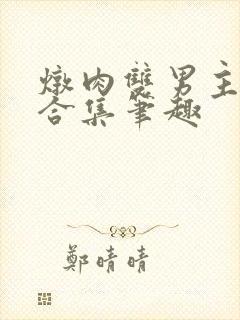 燉肉雙男主
合集筆趣
鄭晴晴